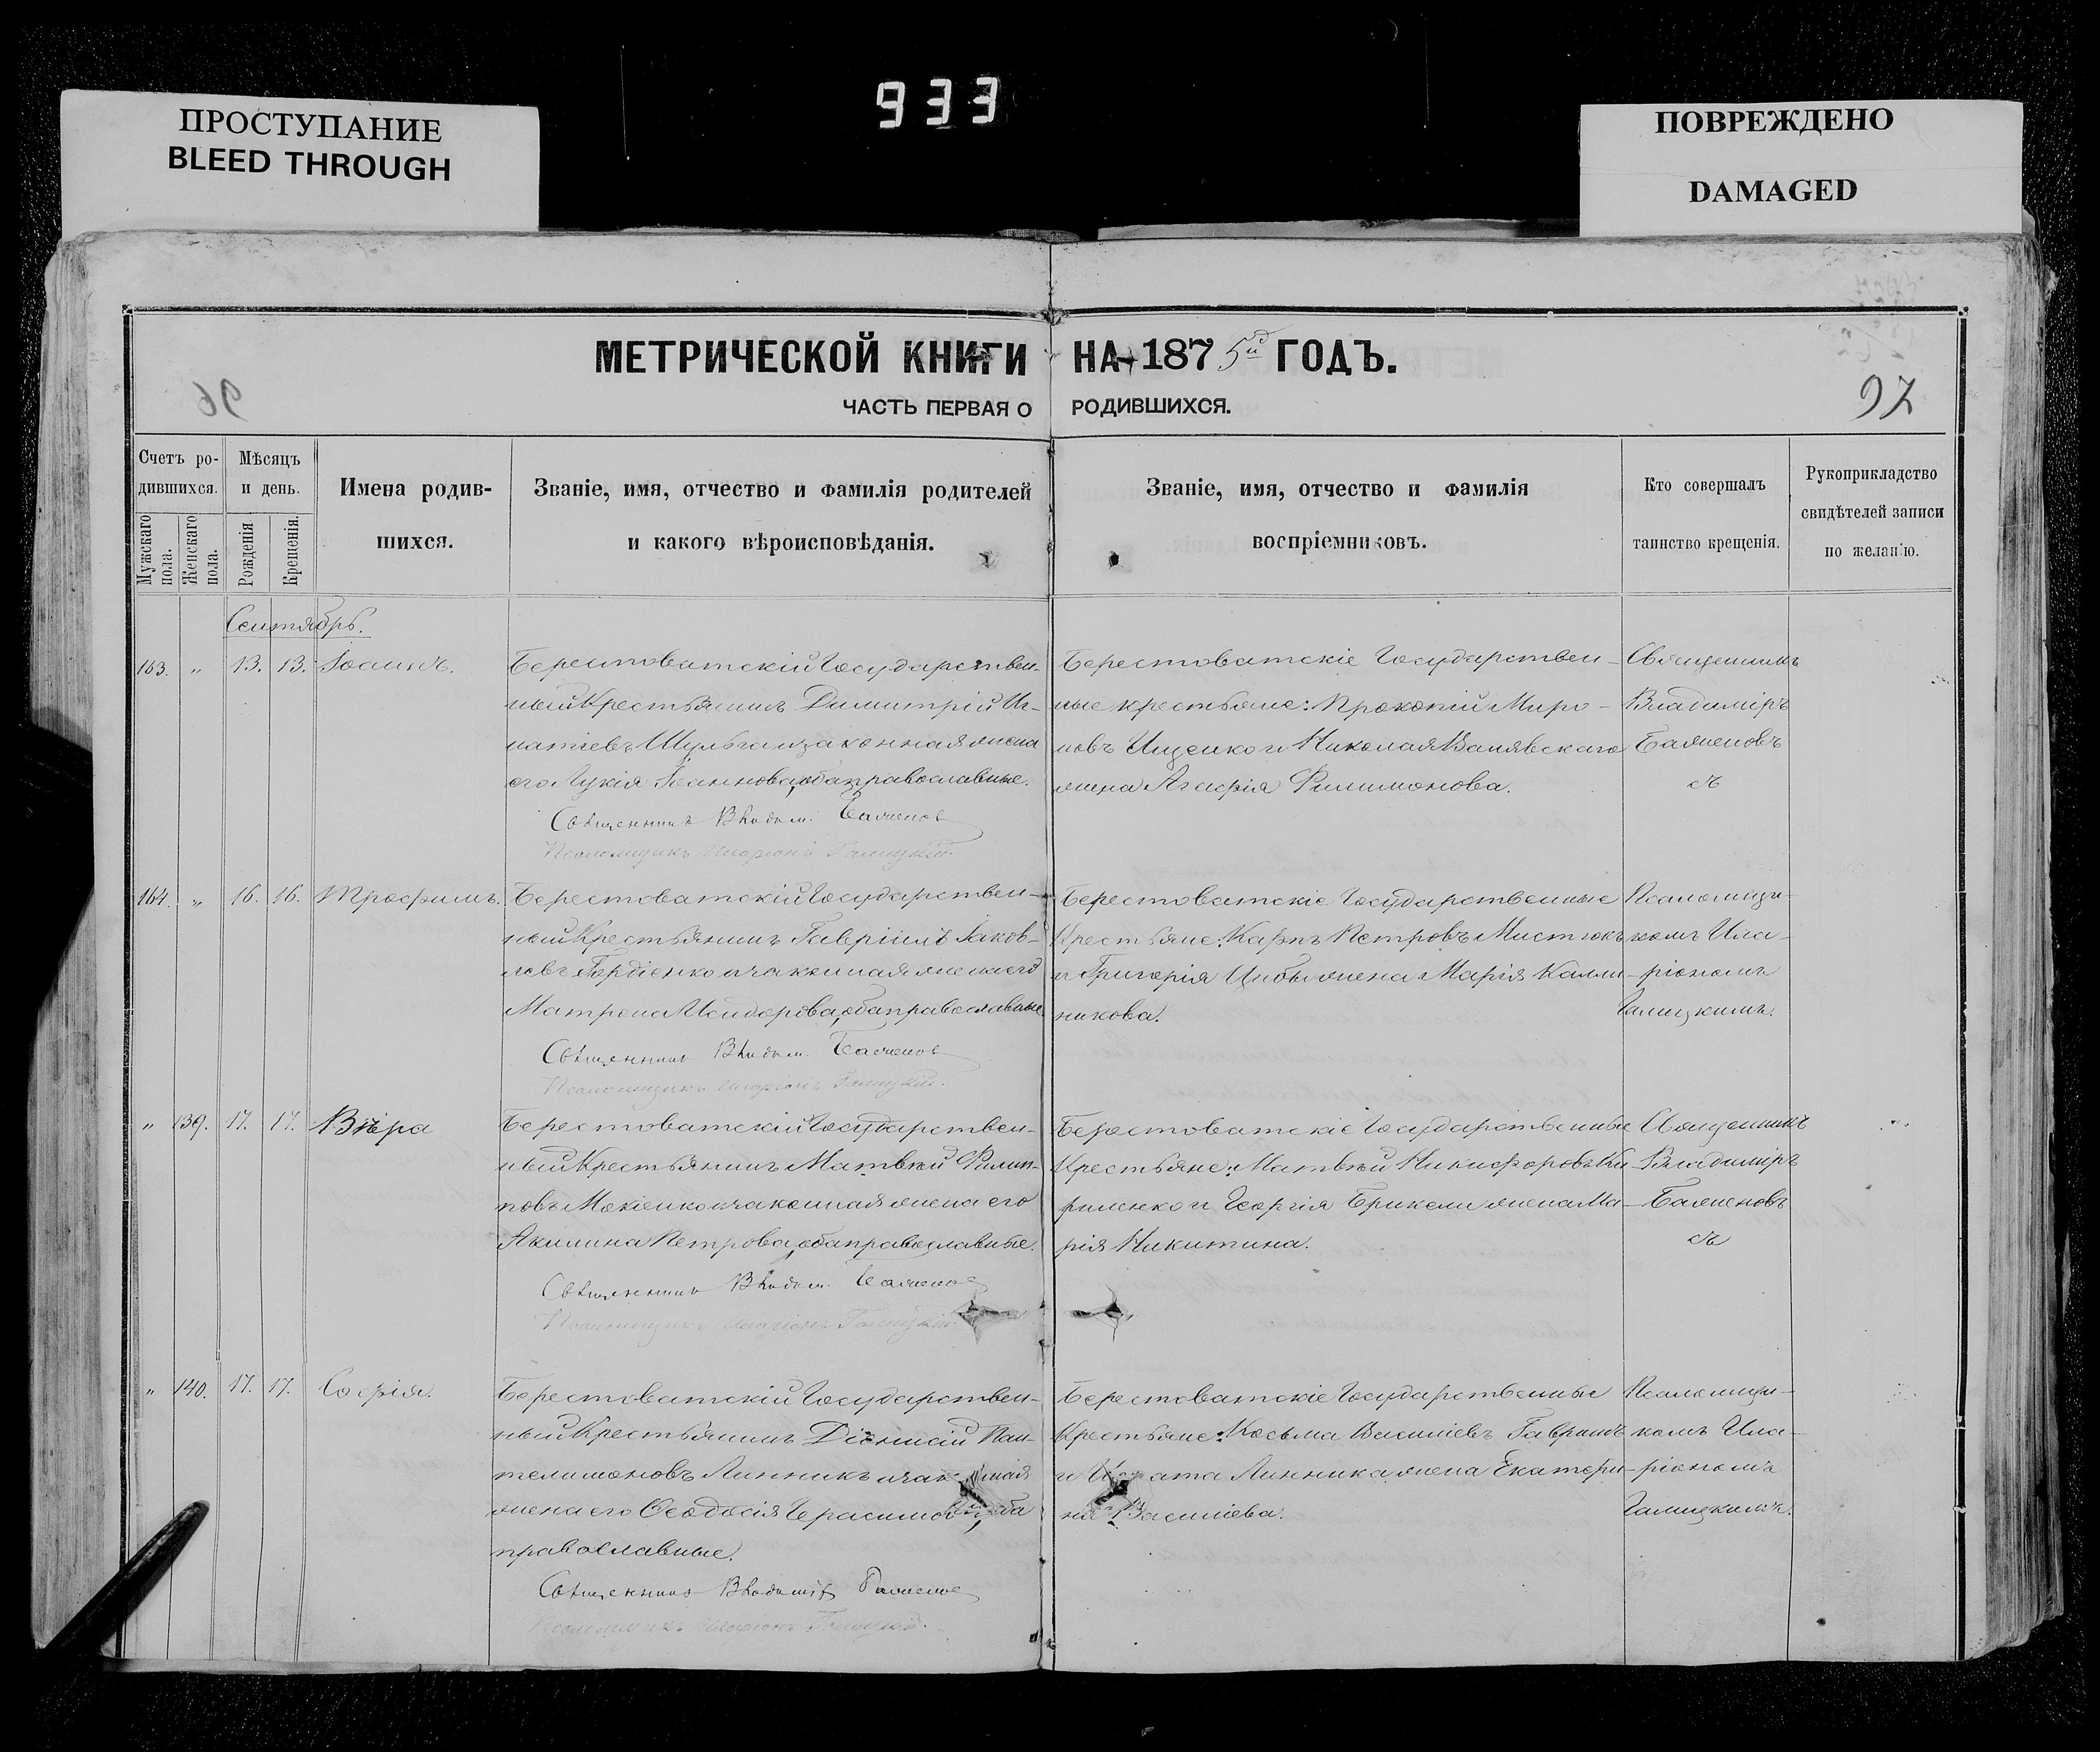 933
ПРОСТУПАНИЕ
BLEED THROUGH
ПОВРЕЖДЕНО
DAMAGED
МЕТРИЧЕСКОЙ КНИГИ НА 1875й ГОДЪ.
96
97
ЧАСТЬ ПЕРВАЯ О РОДИВШИХСЯ.
Счетъ ро-
дившихся.
Мужскаго пола.
Женскаго пола.
Мѣсяцъ
и день.
Рожденія
Крещенія.
Имена родив-
шихся.
Званіе, имя, отчество и фамилія родителей
и какого вѣроисповѣданія.
Званіе, имя, отчество и фамилія
воспріемниковъ.
Кто совершалъ
таинство крещенія.
Рукоприкладство
свидѣтелей записи
по желанію.
Сентябрь.
163. " 13. 13. Іоаннъ.
Берестоватскій Государствен-
ный Крестьянинъ Димитрій Иг-
натіевъ Шульга и законная жена
его Лукія Іоаннова, оба православные.
Священникъ Владим. Баженов
Псаломщикъ Иларіонъ Галицкій.
Берестоватскіе Государствен-
ные крестьяне: Прокопій Миро-
новъ Ищенко и Николая Ванявскаго
жена Агафія Филимонова.
Священникъ
Владиміръ
Баженовъ
164. " 16. 16. Трофимъ.
Берестоватскій Государствен-
ный Крестьянинъ Гавріилъ Іаков-
левъ Гордіенко и законная жена его
Матрона Исидорова, оба православные
Священник Владим. Баженов
Псаломщикъ Иларіонъ Галицкій.
Берестоватскіе Государственные
Крестьяне: Карпъ Петровъ Мистюкъ
и Григорія Цибы жена Марія Калли-
никова.
Псаломщи-
комъ Ила-
ріономъ
Галицкимъ.
" 139. 17. 17. Вѣра
Берестоватскій Государствен-
ный Крестьянинъ Матвѣй Филип-
повъ Мокіенко и законная жена его
Акилина Петрова, оба православные.
Священник Владим. Баженов
Псаломщикъ Иларіонъ Галицкій
Берестоватскіе Государственные
Крестьяне: Матвѣй Никифоровъ Ки-
риленко и Георгія Брикели жена Ма-
рія Никитина.
Священникъ
Владиміръ
Баженовъ
" 140. 17. 17. Софія.
Берестоватскій Государствен-
ный Крестьянинъ Діонисій Пан-
телимоновъ Линникъ и зак ная
жена его Ѳеодосія Герасимова, оба
православные.
Священник Владимір Баженов
Псаломщикъ Иларіонъ Галицкій.
Берестоватскіе Государственные
Крестьяне: Косьма Василіевъ Гавришъ
и Линника жена Екатери-
на Василіева.
Псаломщи-
комъ Ила-
ріономъ
Галицкимъ.